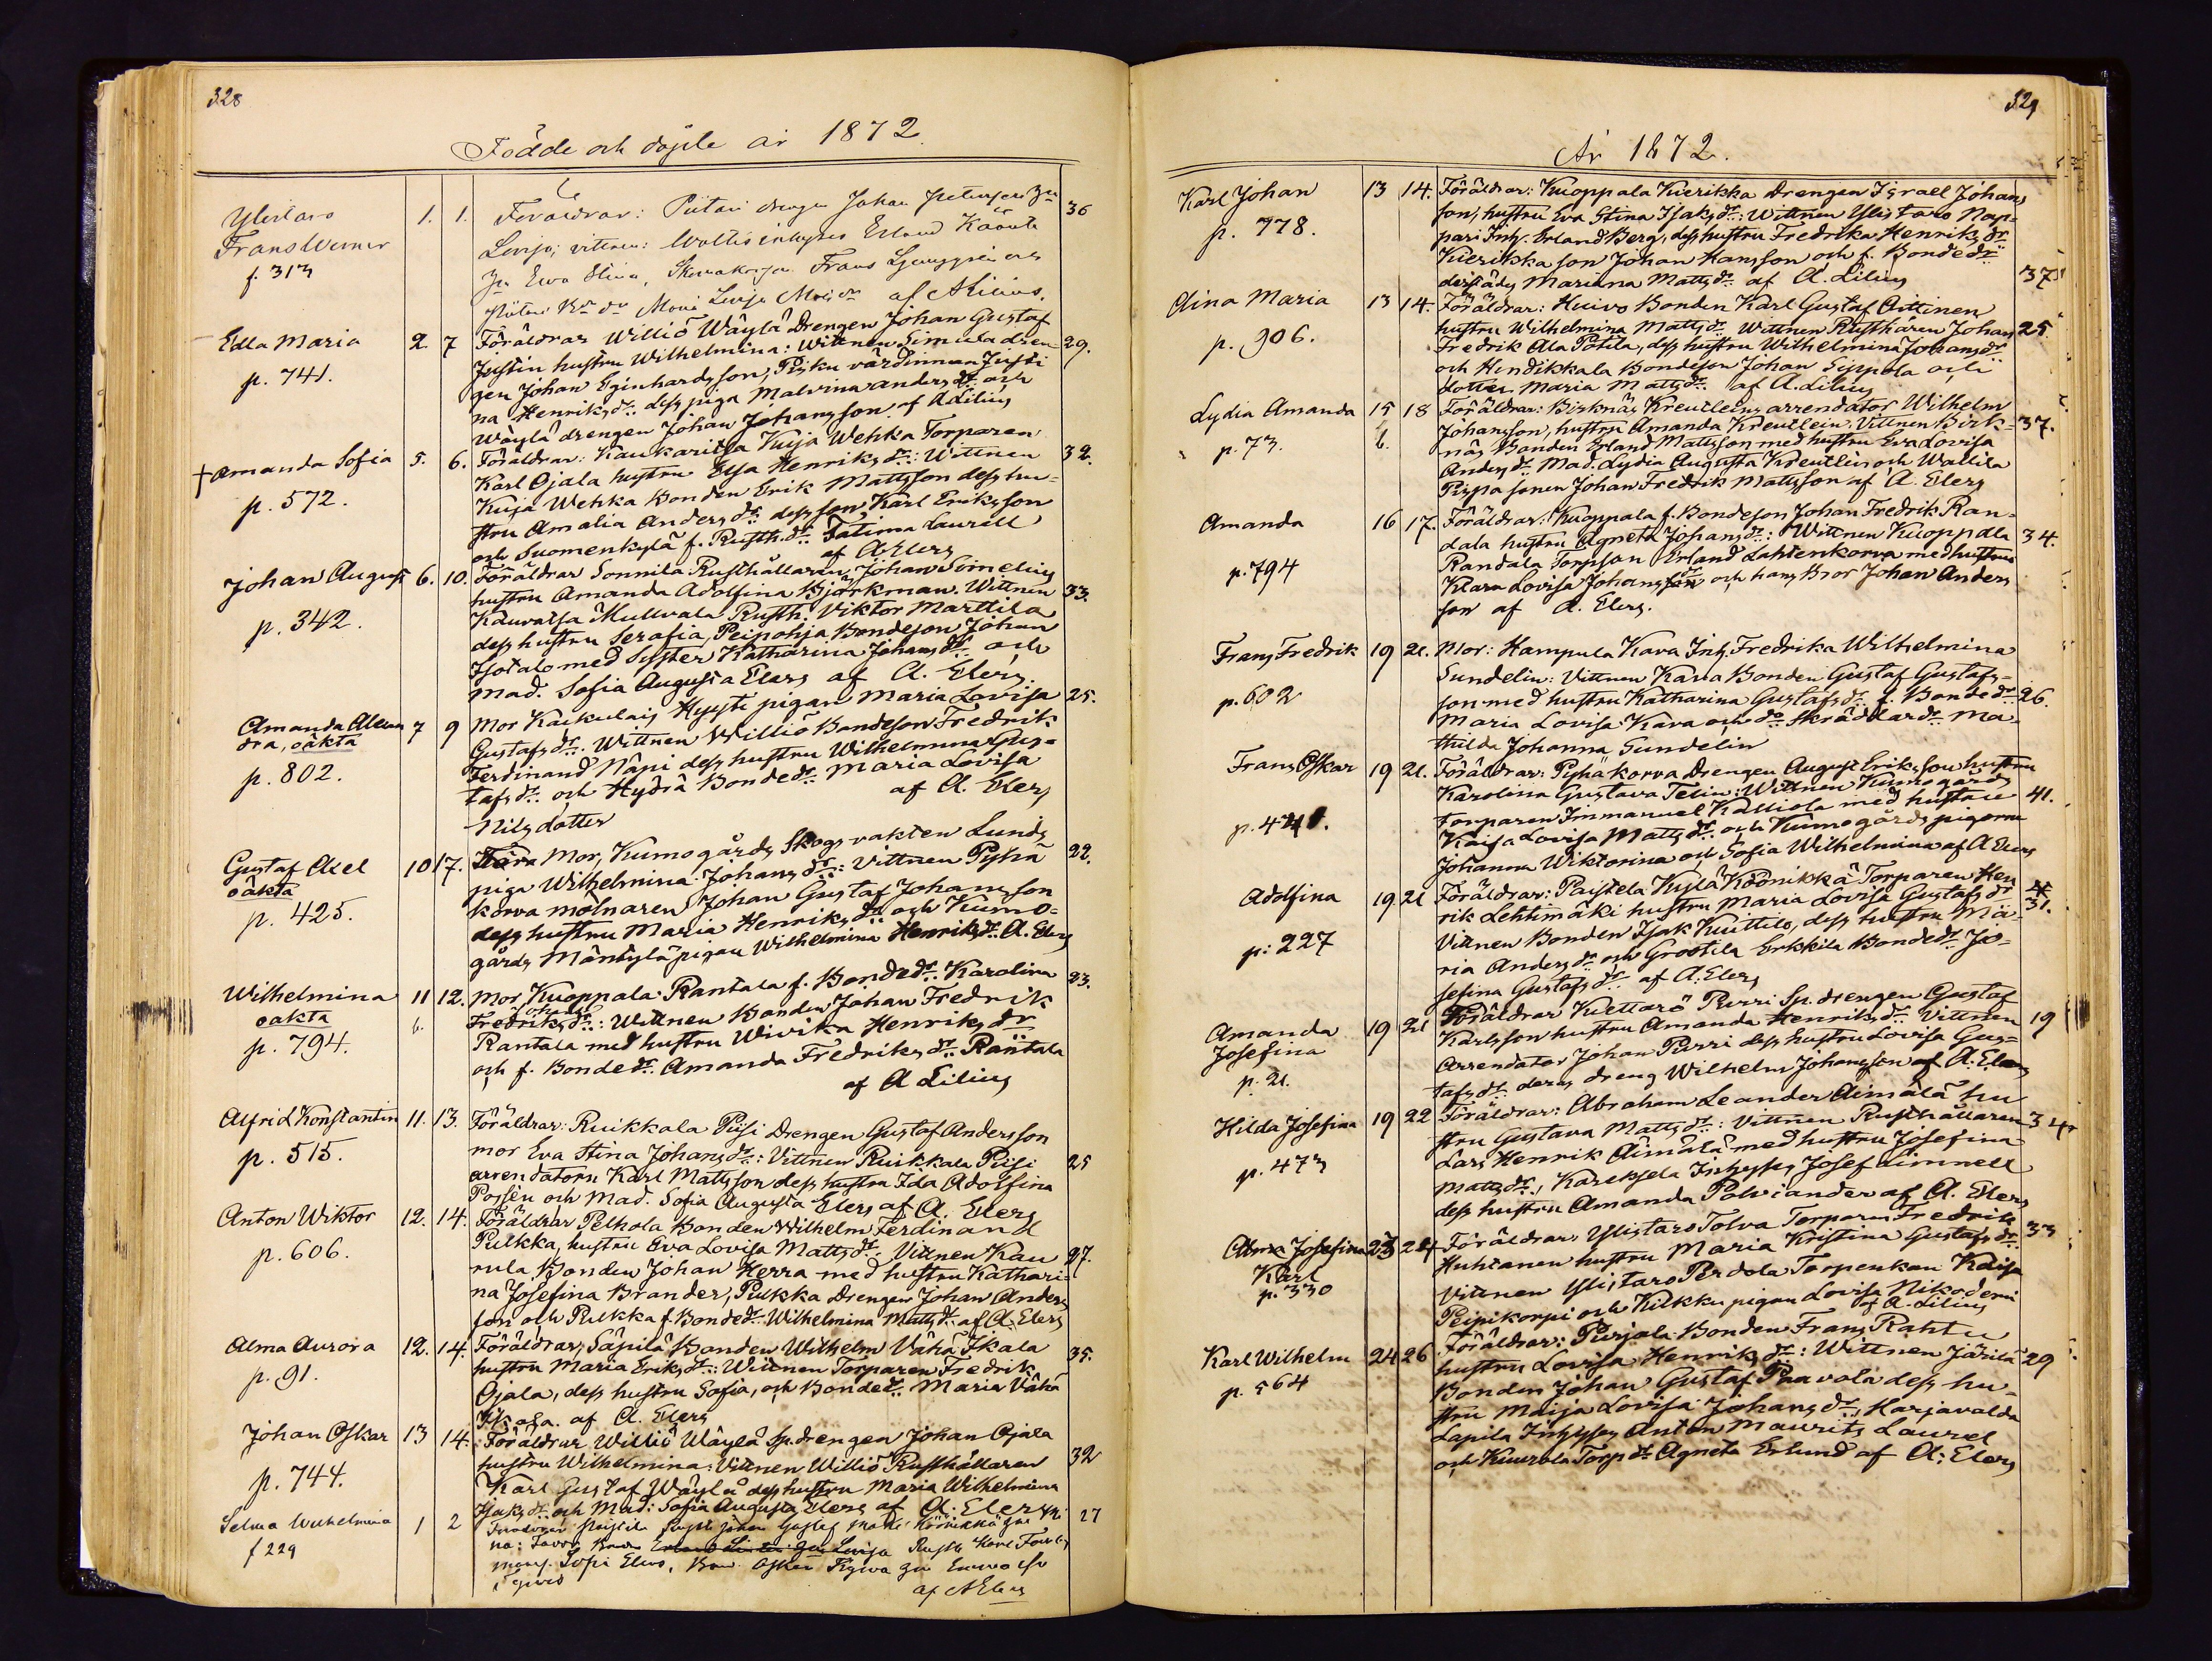 328
Födde och döpte år 1872.
Ylistaro 1. 1. Föräldrar: Piitari drengen Johan 36
Frans Werner Lovisa; vittnen: Erland
f. 313 Eva Stina, Frans Ljunggren och
Maria Lovisa af A Lilius.
Edla Maria 2. 7 Föräldrar Williö Wäylä Drengen Johan Gustaf
Justin hustru Wilhelmina: Wittnen Simula dren- 29.
p. 741. gen Johan Eginhardsson, Pisku värdinnan Justi
na Henriksdr: dess piga Malvina Andersdr och
Wäylä drengen Johan Johansson af A Lilius
+ Amanda Sofia 5. 6. Föräldrar: Kaukaritsa Kuja Wehka Torparen
Karl Ojala hustru Elsa Henriksdr: Wittnen 32.
p. 572. Kuja Wehka Bonden Erik Mattsson dess hu-
stru Amalia Andersdr dess son Karl Eriksson
och Suomenkylä f. Rusth.dr: Fatima Laurell
af A Elers
Johan August 6. 10. Föräldrar Sonnila Rusthållaren Johan Simelius
hustru Amanda Adolfina Björkman. Wittnen 33.
p. 342. Kauvatsa Mullvala Rusth. Viktor Marttila
dess hustru Serafia, Peipohja Bondeson Johan
Isotalo med Syster Katharina Johansdr och
Mad. Sofia Augusta Elers af A. Elers.
Amanda Alexan 7 9 Mor Karkulais Hyysti pigan Maria Lovisa 25.
dra, oäkta Gustafsdr. Wittnen Williö Bondeson Fredrik
p. 802. Ferdinand Näpi dess hustru Wilhelmina Gus-
tafsdr och Hydiä Bondedr: Maria Lovisa
Nilsdotter af A. Elers
Gustaf Axel 10 17. Mor, Kumogårds Skogsvakten Lunds
oäkta piga Wilhelmina Johansdr: Vittnen Pyhä 22.
p. 425. korva mölnaren Johan Gustaf Johansson
dess hustru Maria Henriksdr och Kumo-
gårds Mäntylä pigan Wilhelmina Henriksdr. A. Elers
Wilhelmina 11 12. Mor, Kuoppala Rantala f. Bondedr. Karolina 23.
oäkta b. Fredriksdr: Wittnen Bonden Johan Fredrik
p. 794. Rantala med hustru Wivika Henriksdr
och f. Bondedr. Amanda Fredriksdr. Rantala
af A Lilius
Alfrid Konstantin 11. 13. Föräldrar: Ruikkala Piisi Drengen Gustaf Andersson
mor Eva Stina Johansdr: Vittnen Ruikkala Piisi 25
p. 515. arrendatorn Karl Mattsson dess hustru Ida Adolfina
Possén och Mad. Sofia Augusta Elers af A. Elers
Anton Wiktor 12. 14. Föräldrar Pelhola Bonden Wilhelm Ferdinand
Pulkka, hustru Eva Lovisa Mattsdr. Vittnen Kau
p. 606. rula Bonden Johan Herra med hustru Kathari- 27.
na Josefina Brander, Pulkka Drengen Johan Anders
son och Pulkka f. Bondedr Wilhelmina Mattsdr af A. Elers
Alma Aurora 12. 14. Föräldrar, Säpilä Bonden Wilhelm Vähä Ikala
hustru Maria Eriksdr: Wittnen Torparen Fredrik 35.
p. 91. Ojala, dess hustru Sofia, och Bondedr. Maria Vähä
Ikala. af A. Elers
Johan Oskar 13 14. Föräldrar Williö Wäylä Sp.drengen Johan Ojala
hustru Wilhelmina: Vittnen Williö Rusthållaren 32
p. 744. Karl Gustaf Wäylä dess hustru Maria Wilhelmina
Isaksdr och Mad: Sofia Augusta Elers af A. Elers
Selma Wilhelmina 1 2 Föräldrar Johan Gustaf 27
f 229 na: Lovisa Karl
Sofia Elers, Oskar
af A Elers
329
År 1872.
Karl Johan 13 14. Föräldrar: Kuoppala Kierikka Drengen Israel Johans
son, hustru Eva Stina Isaksdr: Wittnen Ylistaro Nap-
p. 778. pari Inh. Erland Berg, dess hustru Fredrika Henriksdr
Kierikka son Johan Hansson och f. Bondedr
derstädes Marianna Mattsdr af A. Lilius 37
Aina Maria 13 14. Föräldrar: Huivo Bonden Karl Gustaf Anttinen
hustru Wilhelmina Mattsdr. Wittnen Rusthåren Johan 25.
p. 906. Fredrik Ala Potila, dess hustru Wilhelmina Johansdr
och Hindikkala Bondeson Johan Sippola och
dotter Maria Mattsdr. af A. Lilius
Lydia Amanda 15 18 Föräldrar: Birknäs Kreutleins arrendator Wilhelm
b. Johansson, hustru Amanda Kreutlein: Vittnen Birk- 37.
p. 73. näs Bonden Erland Mattsson med hustru Eva Lovisa
Andersdr Mad. Lydia Augusta Kreutlein och Wallila
Pirpa sonen Johan Fredrik Mattsson af A. Elers
Amanda 16 17. Föräldrar: Kuoppala f. Bondeson Johan Fredrik Ran-
dala hustru Agneta Johansdr: Wittnen Kuoppala 34.
p. 794 Randala Torpson Erland Lahtenkorva med hustru
Klara Lovisa Johansdr och hans Bror Johan Anders
son af A. Elers.
Frans Fredrik 19 21. Mor: Hampula Kara Inh. Fredrika Wilhelmina
Sundelin: Vittnen Kara Bonden Gustaf Gustafs-
p. 602 son med hustru Katharina Gustafsdr f. Bondedr 26.
Maria Lovisa Kara och do Skräddardr. Ma-
thilda Johanna Sundelin
Frans Oskar 19 21. Föräldrar: Pyhäkorva Drengen August Eriksson hustru
Karolina Gustava Telin: Wittnen Kumogårds 41.
p. 421. Torparen Immanuel Kalliola med hustru
Kaisa Lovisa Mattsdr. och Kumogårds pigorna
Johanna Wiktorina och Sofia Wilhelmina af A Elers
Adolfina 19 21 Föräldrar: Paistela Kylä Köönikkä Torparen Hen
rik Lehtimäki hustru Maria Lovisa Gustafsdr 31.
p: 227 Vittnen Bonden Isak Kuittilo, dess hustru Ma-
ria Andersdr och Grootila Erkkila Bondedr Jo-
sefina Gustafsdr. af A. Elers
Amanda 19 21 Föräldrar Kiettarö Purri Sp. drengen Gustaf
Josefina Karlsson hustru Amanda Henriksdr. Vittnen 19
p. 21. Arrendator Johan Purri dess hustru Lovisa Gus-
tafsdr. deras dreng Wilhelm Johansson af A. Elers
Hilda Josefina 19 22 Föräldrar: Abraham Leander Aimälä hu
stru Gustava Mattsdr: Vittnen Rusthållaren 34
p. 473 Lars Henrik Aimälä med hustru Josefina
Mattsdr, Kareksela Inhyses Josef Limnell
dess hustru Amanda Polviander af A. Elers
Alma Josefina 23 24 Föräldrar, Ylistaro Tolva Torparen Fredrik 33
Karl Huhtanen hustru Maria Kristina Gustafsdr.
p. 330 Vittnen Ylistaro Perdola Torpenkan Kaisa
Peipikorpi och Kilkku pigan Lovisa Nikodemi
af A. Lilius
Karl Wilhelm 24 26 Föräldrar: Purjala Bonden Frans Rahtu
hustru Lovisa Henriksdr: Wittnen Järilä 29
p. 564 Bonden Johan Gustaf Paavola dess hu-
stru Maija Lovisa Johansdr, Harjavalda
Lapila Inhyses Anton Maurits Laurel
och Kuurola Torpdr Agneta Erlund af A: Elers